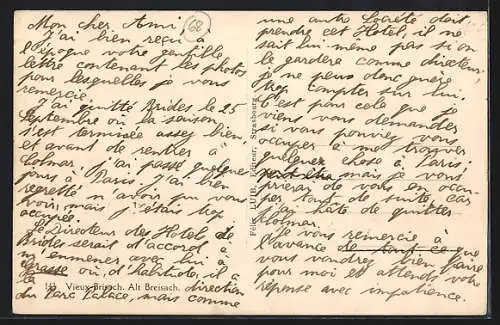 Mon cher Ami,
68
J'ai bien reçu à
l'époque votre gentille
lettre contenant les photos
pour lesquelles je vous
remercie.
J'ai quitté Brides le 25
Septembre où la saison
s'est terminée assez bien
et avant de rentrer à
Colmar, j'ai passé quelques
jours à Paris. J'ai bien
regretté n'avoir pu vous
voir, mais j'étais trop
occupé.
Le Directeur des Hotel de
Brides serait d'accord à
m'emmener avec lui à
Grasse où, d'habitude, il a
direction
du Parc Palace, mais comme
Vieux-Brisach. Alt Breisach.
Félix LUIB, Strasbourg
une autre Société doit
prendre cet Hotel, il ne
sait lui-même pas si on
le gardera comme directeur.
je ne peux donc guère
trop compter sur lui.
C'est pour cela que je
viens vous demander
si vous pouviez vous
occuper à me trouver
quelque chose à Paris.
mais je vous
prierai de vous en occu-
per tout de suite, car
j'ai hâte de quitter
Colmar.
Je vous remercie à
l'avance de tout ce que
vous voudrez bien faire
pour moi et attends votre
réponse avec impatience.